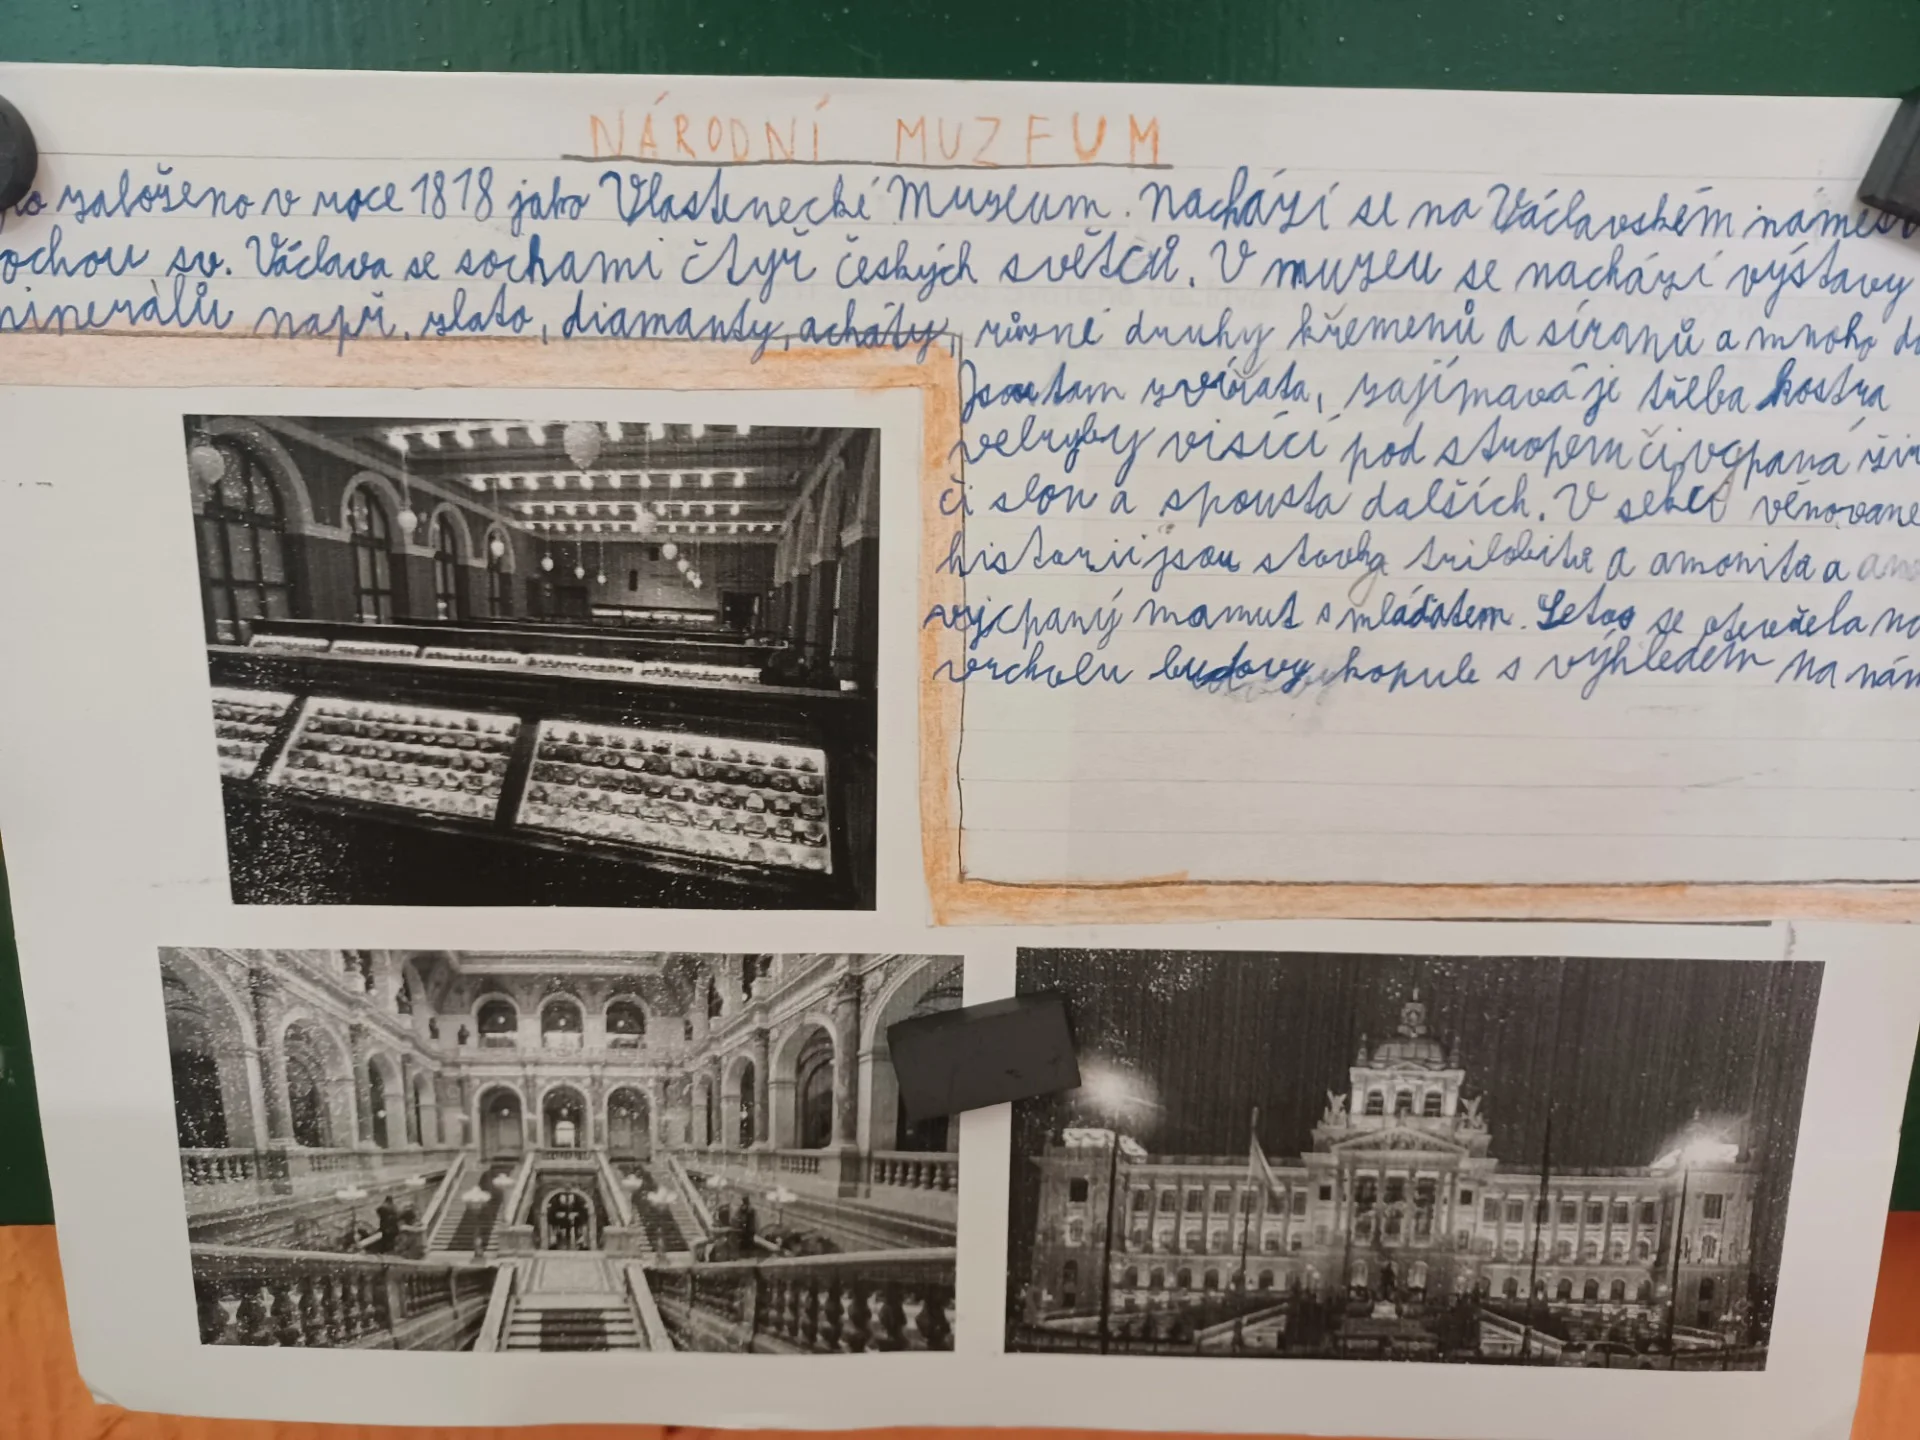 NÁRODNÍ MUZEUM
založeno v roce 1818 jako Vlastenecké Muzeum. Nachází se na Václavském
sochou sv. Václava se sochami čtyř českých světců. V muzeu se nachází výstavy
minerálů např. zlato, diamanty, acháty, různé druhy křemenů a síranů a mnoho
Jsou tam zvířata, zajímavá je třeba kostra
velryby visící pod stropem či vcpaná
či slon a spousta dalších. V sekci věnované
historii jsou stovky trilobitů a amonita a
vycpaný mamut s mláďatem. Letos se otevřela na
vrcholu budovy kopule s výhledem na